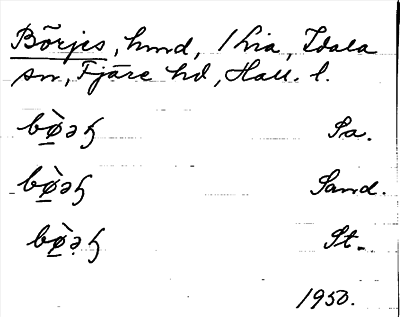 Börjes, hmd, 1 Lia, Idala
sn, Fjäre hd, Hall. l.
bø̀əꞔ Sa.
bø̀əꞔ Sand.
bø̀əꞔ St.
1950.